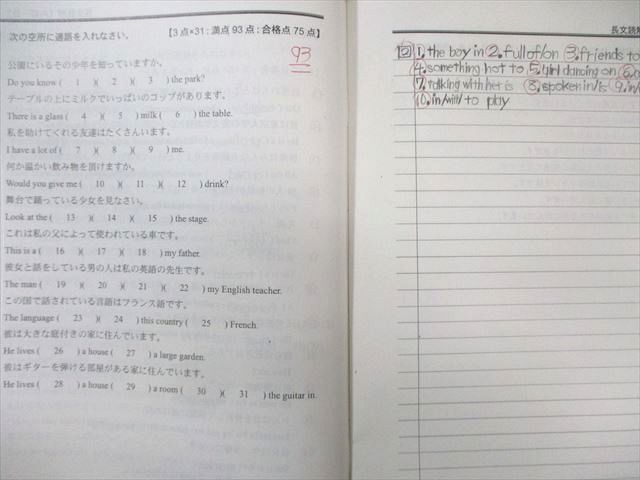 次の空所に適語を入れなさい。 【3点×31:満点93点:合格点75点】
93
公園にいるその少年を知っていますか。
Do you know ( 1 )( 2 )( 3 ) the park?
テーブルの上にミルクでいっぱいのコップがあります。
There is a glass ( 4 )( 5 ) milk ( 6 ) the table.
私を助けてくれる友達はたくさんいます。
I have a lot of ( 7 )( 8 )( 9 ) me.
何か温かい飲み物を頂けますか。
Would you give me ( 10 )( 11 )( 12 ) drink?
舞台で踊っている少女を見なさい。
Look at the ( 13 )( 14 )( 15 ) the stage.
これは私の父によって使われている車です。
This is a ( 16 )( 17 )( 18 ) my father.
彼女と話をしている男の人は私の英語の先生です。
The man ( 19 )( 20 )( 21 )( 22 ) my English teacher.
この国で話されている言語はフランス語です。
The language ( 23 )( 24 ) this country ( 25 ) French.
彼は大きな庭付きの家に住んでいます。
He lives ( 26 ) a house ( 27 ) a large garden.
彼はギターを弾ける部屋がある家に住んでいます。
He lives ( 28 ) a house ( 29 ) a room ( 30 )( 31 ) the guitar in.
長文読解
1. the boy in 2. full of/on 3. friends to
4. something hot to 5. girl dancing on 6.
7. talking with her is 8. spoken in/is 9. in/
10. in/with/to play